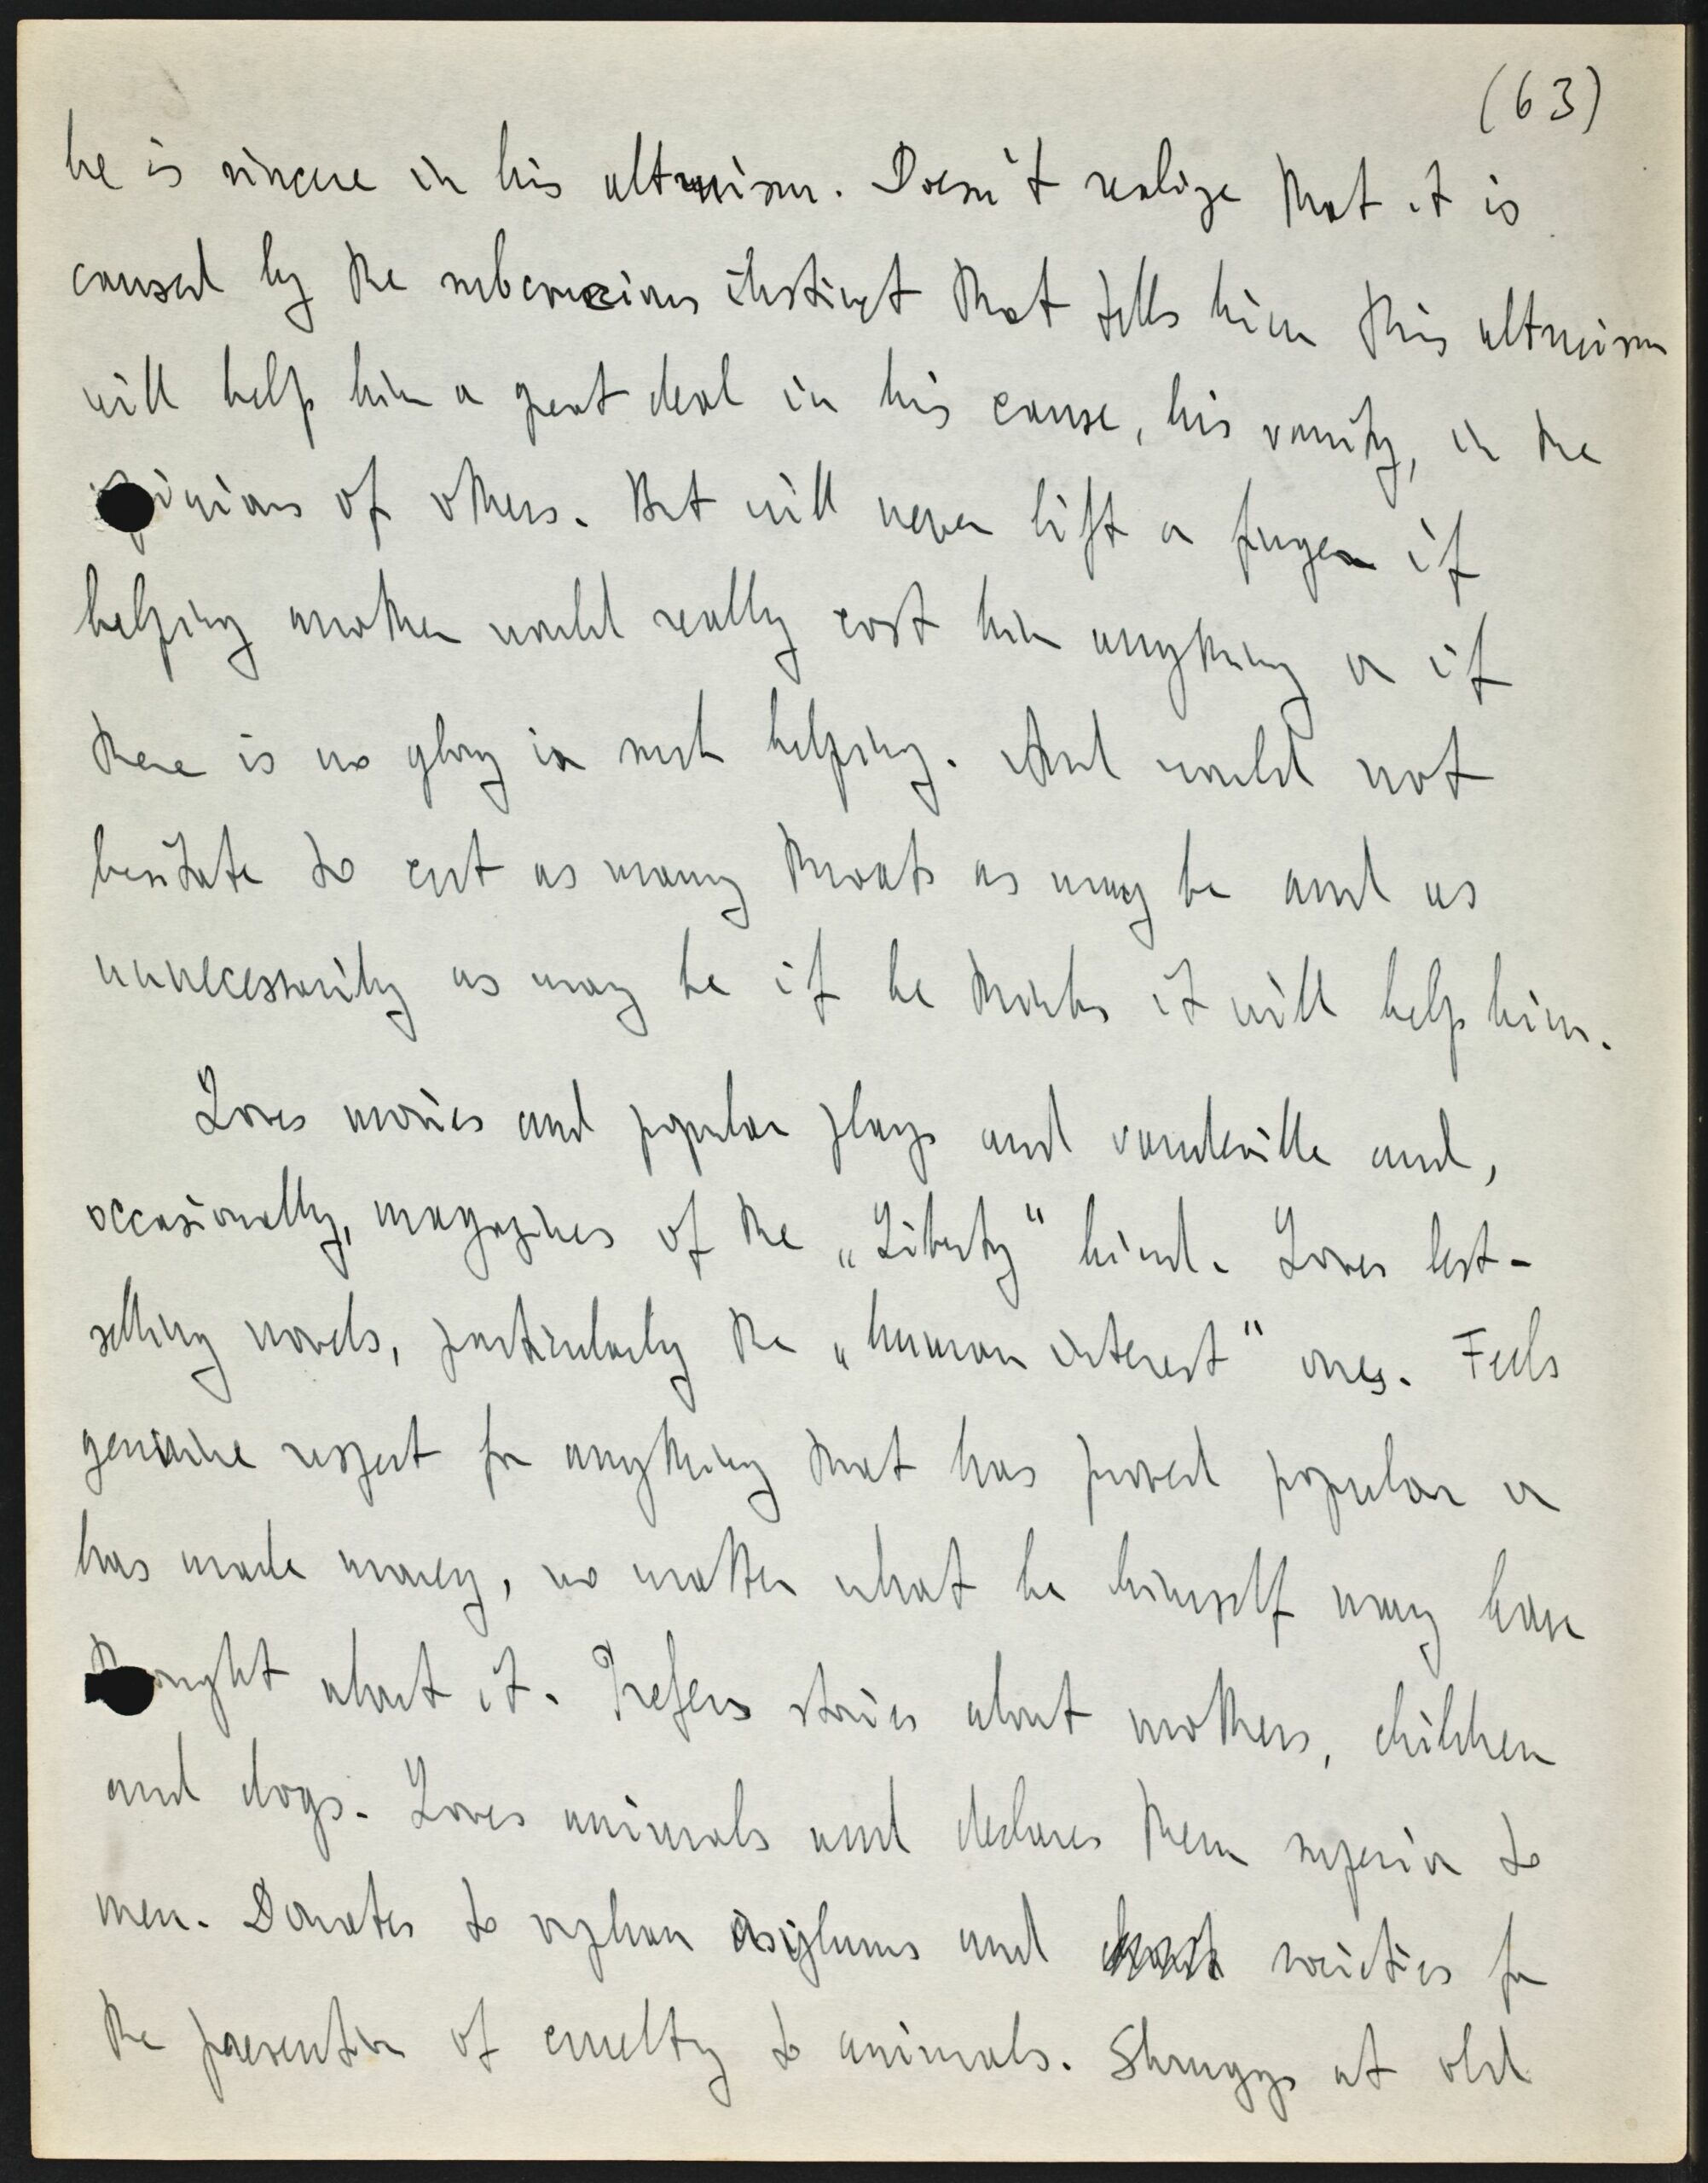 (63)
he is sincere in his altruism. Doesn't realize that it is
caused by the subconscious instinct that tells him this altruism
will help him a great deal in his cause, his vanity, in the
opinions of others. But will never lift a finger if
helping another would really cost him anything or if
there is no glory in such helping. And would not
hesitate to cut as many throats as may be and as
unnecessarily as may be if he thinks it will help him.
Loves movies and popular plays and vaudeville and,
occasionally, magazines of the „Liberty" kind. Loves best-
selling novels, particularly the „human interest" ones. Feels
genuine respect for anything that has proved popular or
has made money, no matter what he himself may have
thought about it. Prefers stories about mothers, children
and dogs. Loves animals and declares them superior to
men. Donates to orphan asylums and societies for
the prevention of cruelty to animals. Shruggs at old